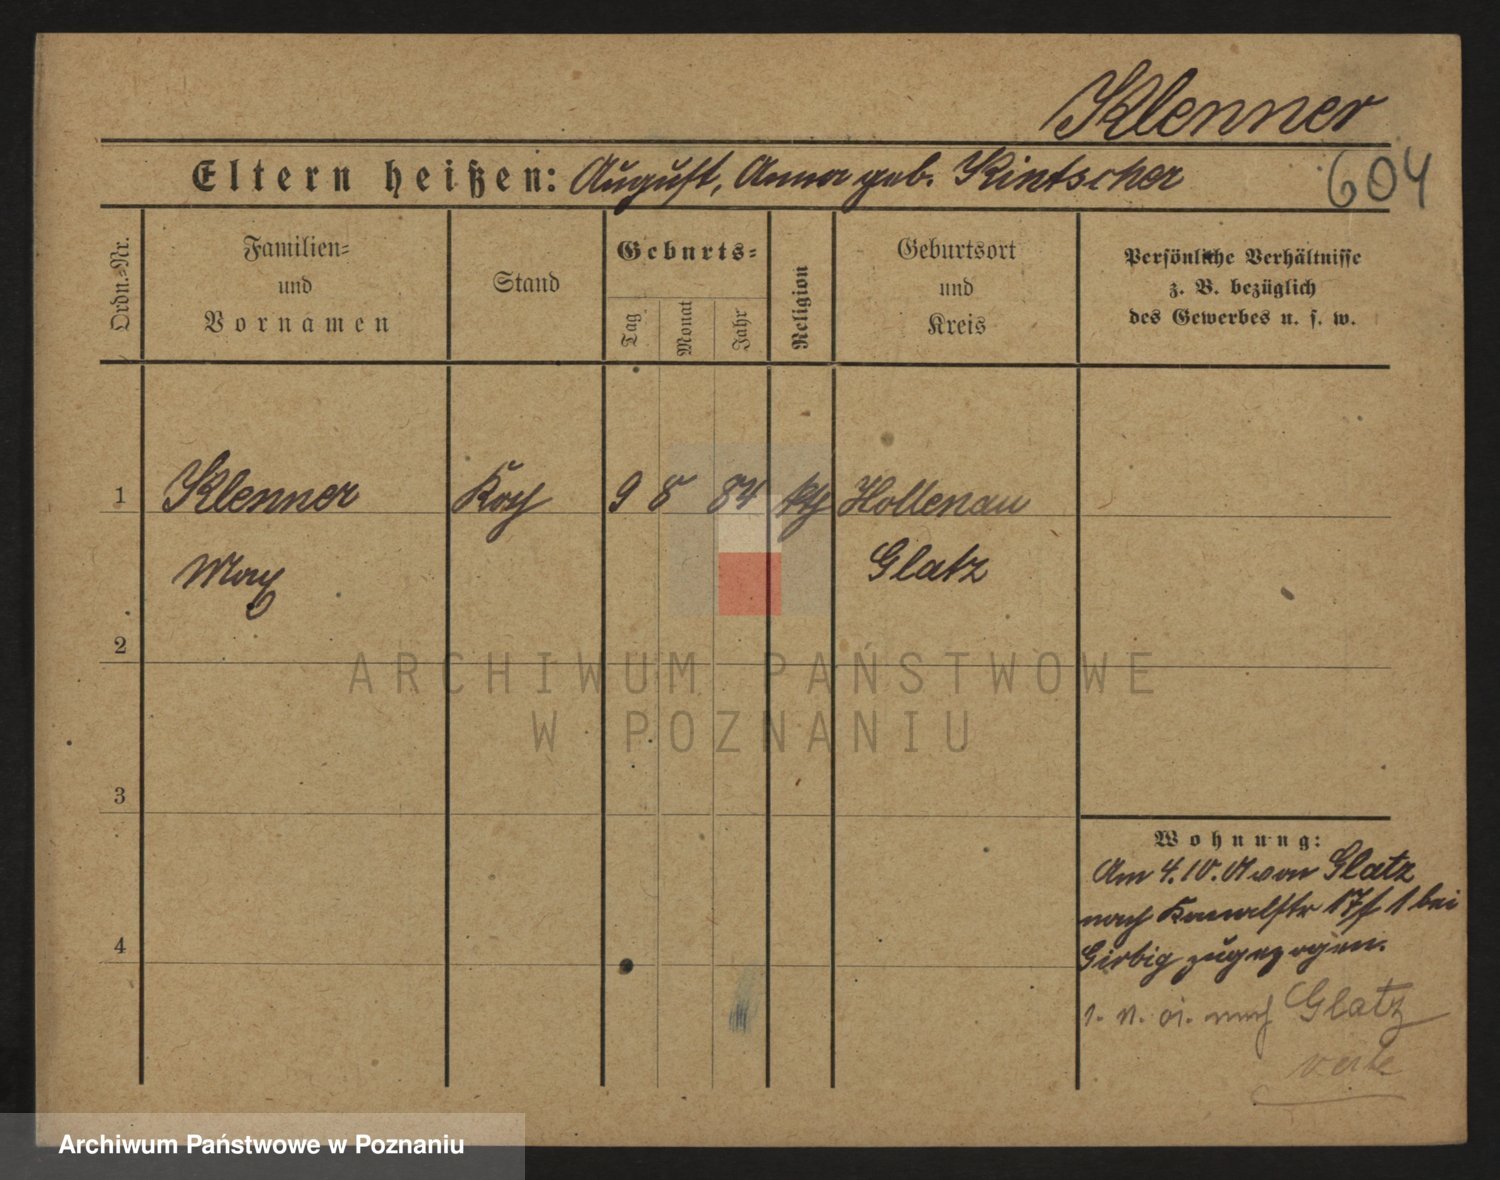 Klenner
Eltern heißen: August, Anna geb. Kintscher
604
Ordn.-Nr.
Familien-
und
Vornamen
Stand
Geburts-
Tag
Monat
Jahr
Religion
Geburtsort
und
Kreis
Persönliche Verhältnisse
z. B. bezüglich
des Gewerbes u. s. w.
1 Klenner Koch 9 8 84 kth Hollenau
Max Glatz
2
3
4
Wohnung:
Am 4.10.01 von Glatz
nach Kanalstr 17/ 1 bei
Girbig zugezogen.
1. 11. 01. nach Glatz
ARCHIWUM PAŃSTWOWE
W POZNANIU
Archiwum Państwowe w Poznaniu